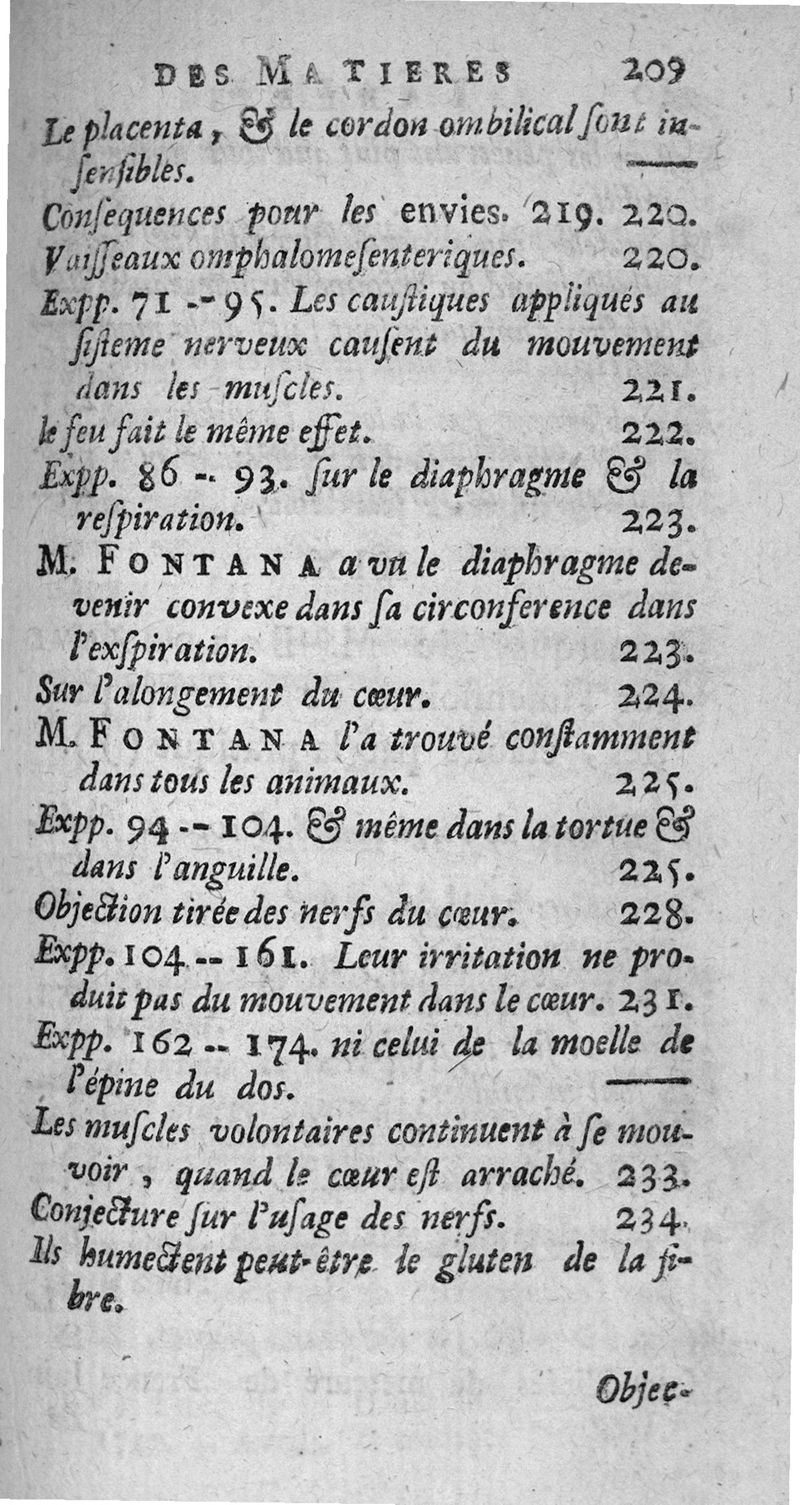 DES MATIERES 209
Le placenta, & le cordon ombilical ſont in-
ſenſibles. ——
Conſequences pour les envies. 219. 220.
Vaiſſeaux omphalomeſenteriques. 220.
Expp. 71 -- 95. Les cauſtiques appliqués au
ſiſteme nerveux cauſent du mouvement
dans les muſcles. 221.
le feu fait le même effet. 222.
Expp. 86 -- 93. ſur le diaphragme & la
reſpiration. 223.
M. FONTANA a vu le diaphragme de-
venir convexe dans ſa circonference dans
l'exſpiration. 223.
Sur l'alongement du cœur. 224.
M. FONTANA l'a trouvé conſtamment
dans tous les animaux. 225.
Expp. 94 -- 104. & même dans la tortue &
dans l'anguille. 225.
Objection tirée des nerfs du cœur. 228.
Expp. 104 -- 161. Leur irritation ne pro-
duit pas du mouvement dans le cœur. 231.
Expp. 162 -- 174. ni celui de la moelle de
l'épine du dos. ——
Les muſcles volontaires continuent à ſe mou-
voir, quand le cœur eſt arraché. 233.
Conjecture ſur l'uſage des nerfs. 234.
Ils humectent peut-être le gluten de la fi-
bre.
Objec-